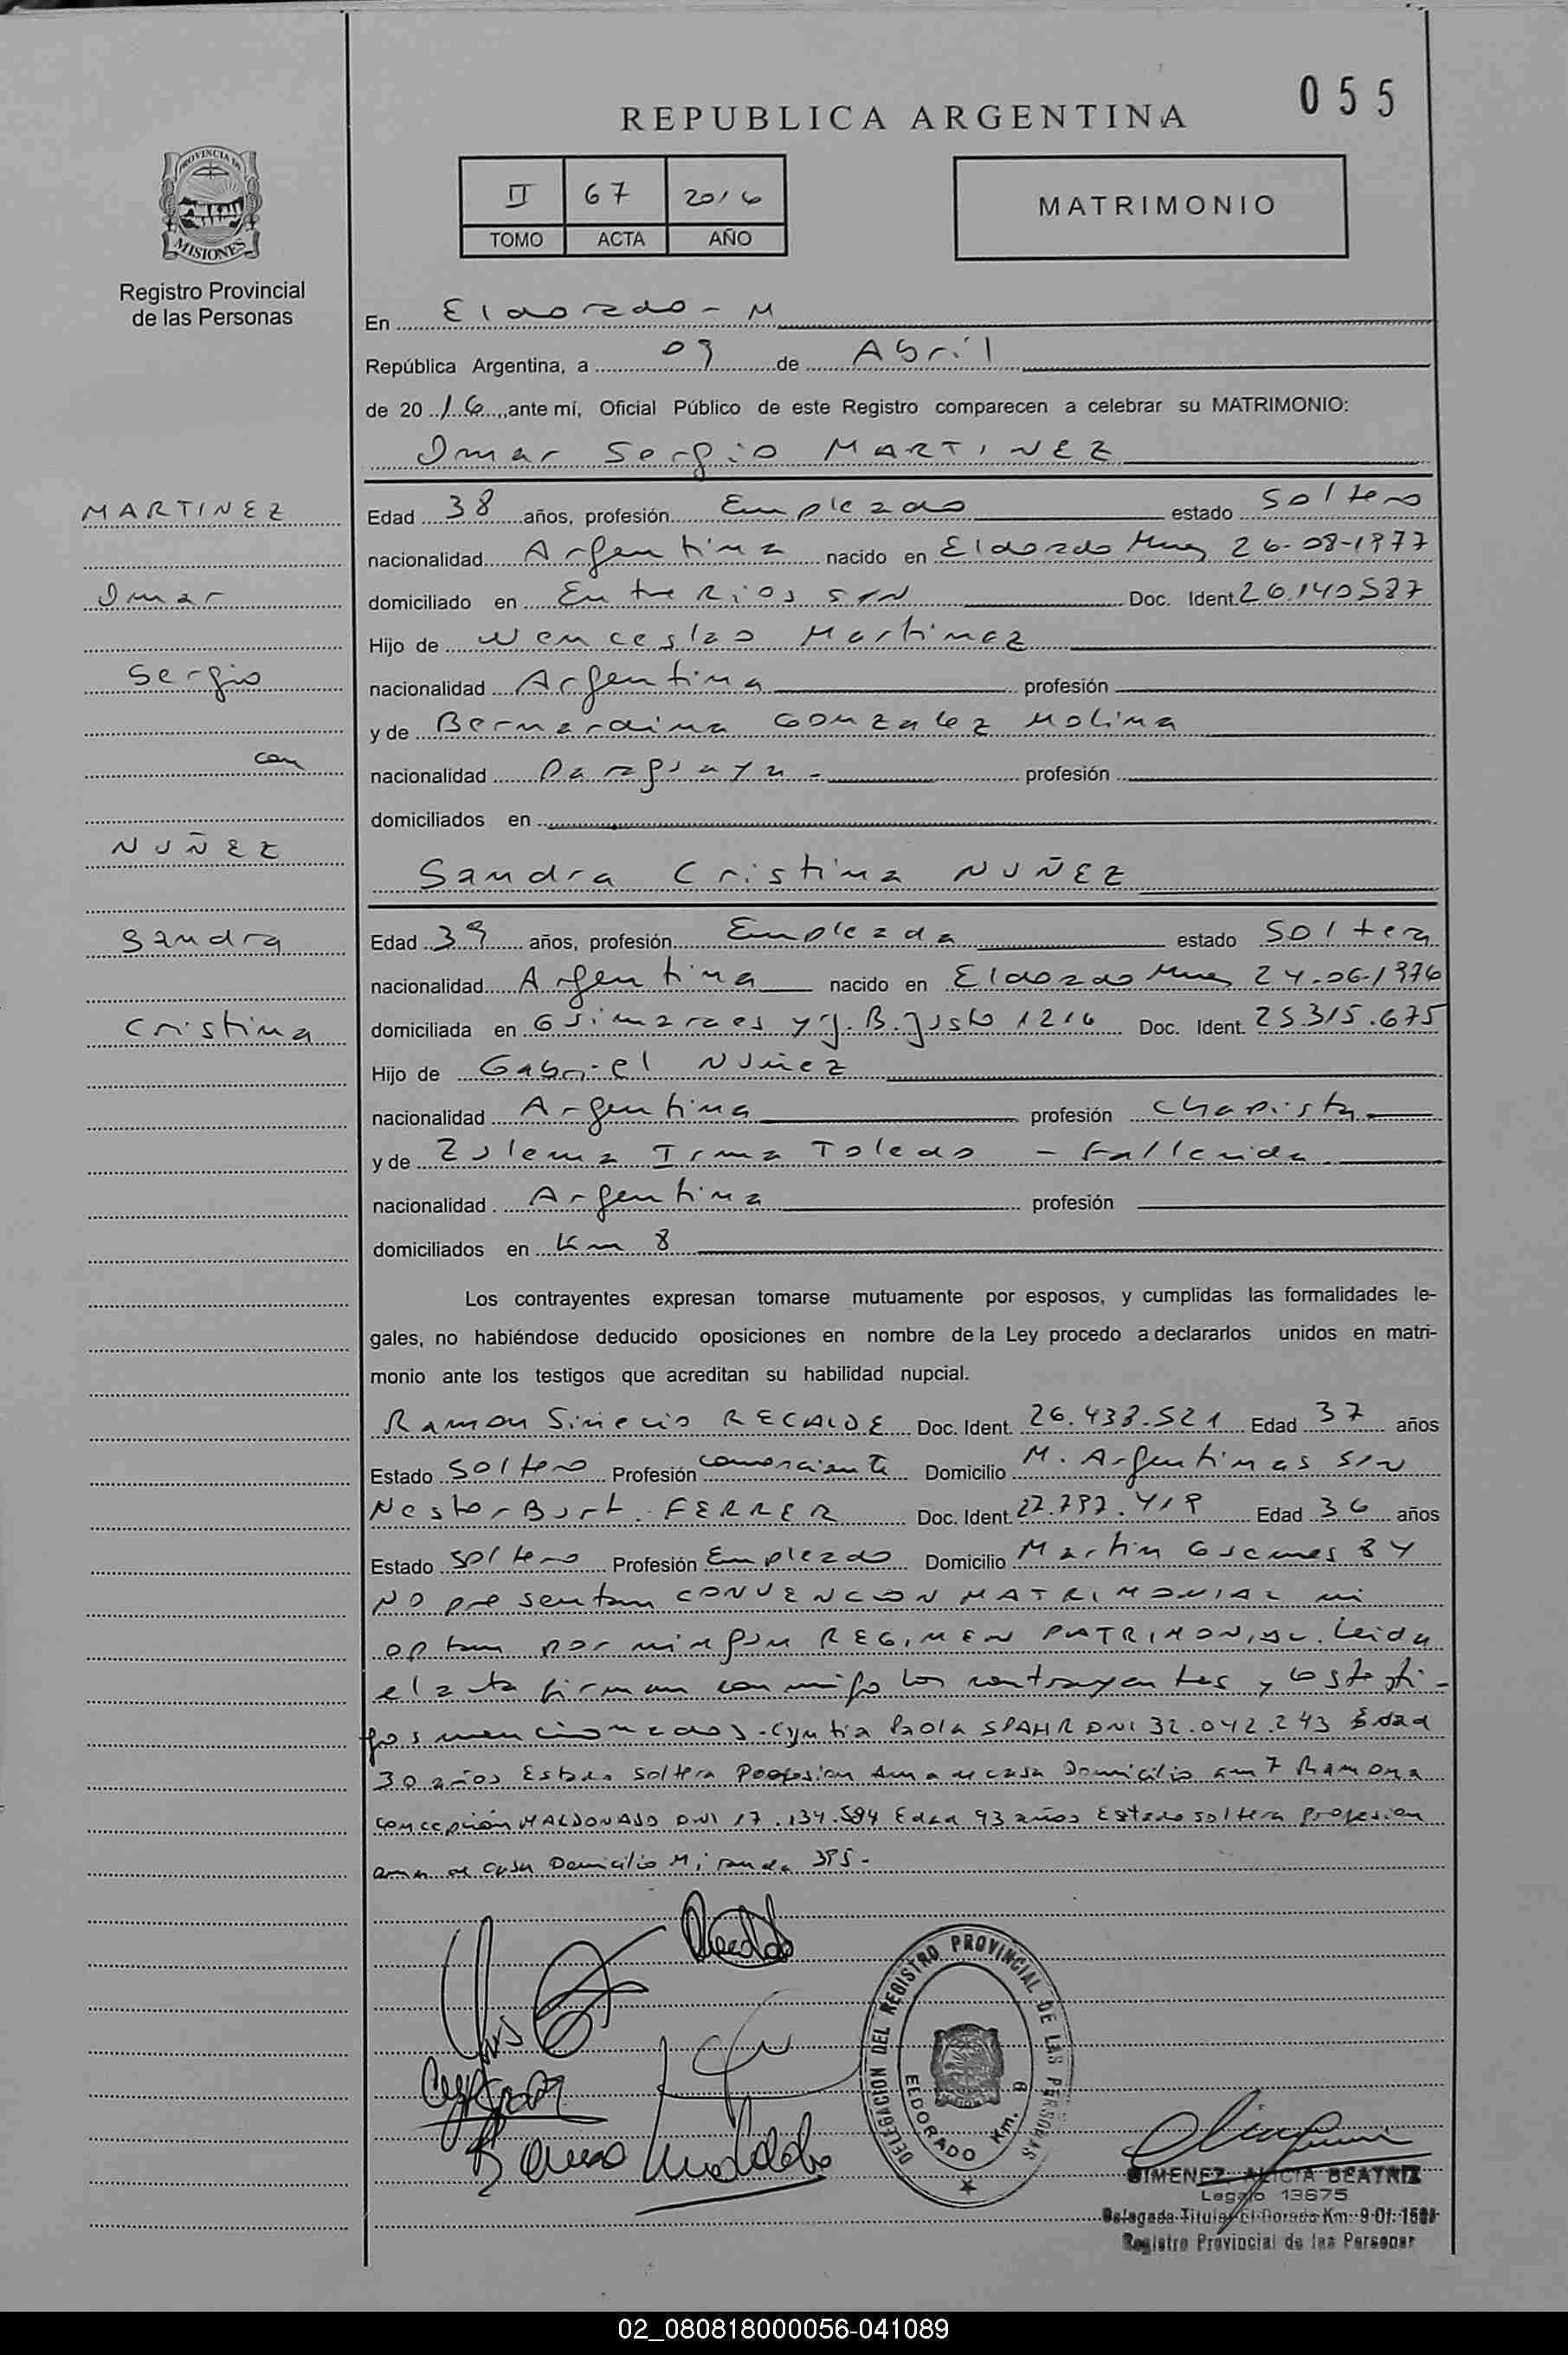 055
REPUBLICA ARGENTINA
II 67 2016
TOMO ACTA AÑO
MATRIMONIO
PROVINCIA DE
MISIONES
Registro Provincial
de las Personas
En Eldorado - M
República Argentina, a 09 de Abril
de 2016, ante mí, Oficial Público de este Registro comparecen a celebrar su MATRIMONIO:
Omar Sergio MARTINEZ
MARTINEZ
Omar
Sergio
con
NUÑEZ
Sandra
Cristina
Edad 38 años, profesión Empleado estado Soltero
nacionalidad Argentina nacido en Eldorado Mnes 26-08-1977
domiciliado en Entre Rios S/N Doc. Ident. 26.140.587
Hijo de Wenceslao Martinez
nacionalidad Argentina profesión
y de Bernardina Gonzalez Molina
nacionalidad Paraguaya - profesión
domiciliados en
Sandra Cristina NUÑEZ
Edad 39 años, profesión Empleada estado Soltera
nacionalidad Argentina nacido en Eldorado Mnes 24-06-1976
domiciliada en Guimaraes y J. B. Justo 1216 Doc. Ident. 25.315.675
Hijo de Gabriel Nuñez
nacionalidad Argentina profesión Chapista
y de Zulema Irma Toledo - Fallecida
nacionalidad Argentina profesión
domiciliados en Km 8
Los contrayentes expresan tomarse mutuamente por esposos, y cumplidas las formalidades le-
gales, no habiéndose deducido oposiciones en nombre de la Ley procedo a declararlos unidos en matri-
monio ante los testigos que acreditan su habilidad nupcial.
Ramon Sinecio RECALDE Doc. Ident. 26.438.521 Edad 37 años
Estado Soltero Profesión comerciante Domicilio M. Argentinas S/N
Nestor Burt. FERRER Doc. Ident. 22.797.419 Edad 36 años
Estado soltero Profesión Empleado Domicilio Martin Guemes 84
NO presentan CONVENCION MATRIMONIAL ni
optan por ningun REGIMEN PATRIMONIAL. Leida
el acta firman conmigo los contrayentes y los testi-
gos mencionados - Cyntia Paola SPAHR DNI 32.042.243 Edad
30 años Estado Soltera Profesion Ama de casa Domicilio Km 7 Ramona
Concepción MALDONADO DNI 17.134.584 Edad 93 años Estado soltera profesion
ama de casa Domicilio Miranda 395 -
DELEGACION DEL REGISTRO PROVINCIAL DE LAS PERSONAS
ELDORADO Km.
GIMENEZ ALICIA BEATRIZ
Legajo 13675
Delegada Titular El Dorado Km. 9 Of.
Registro Provincial de las Personas
02_080818000056-041089